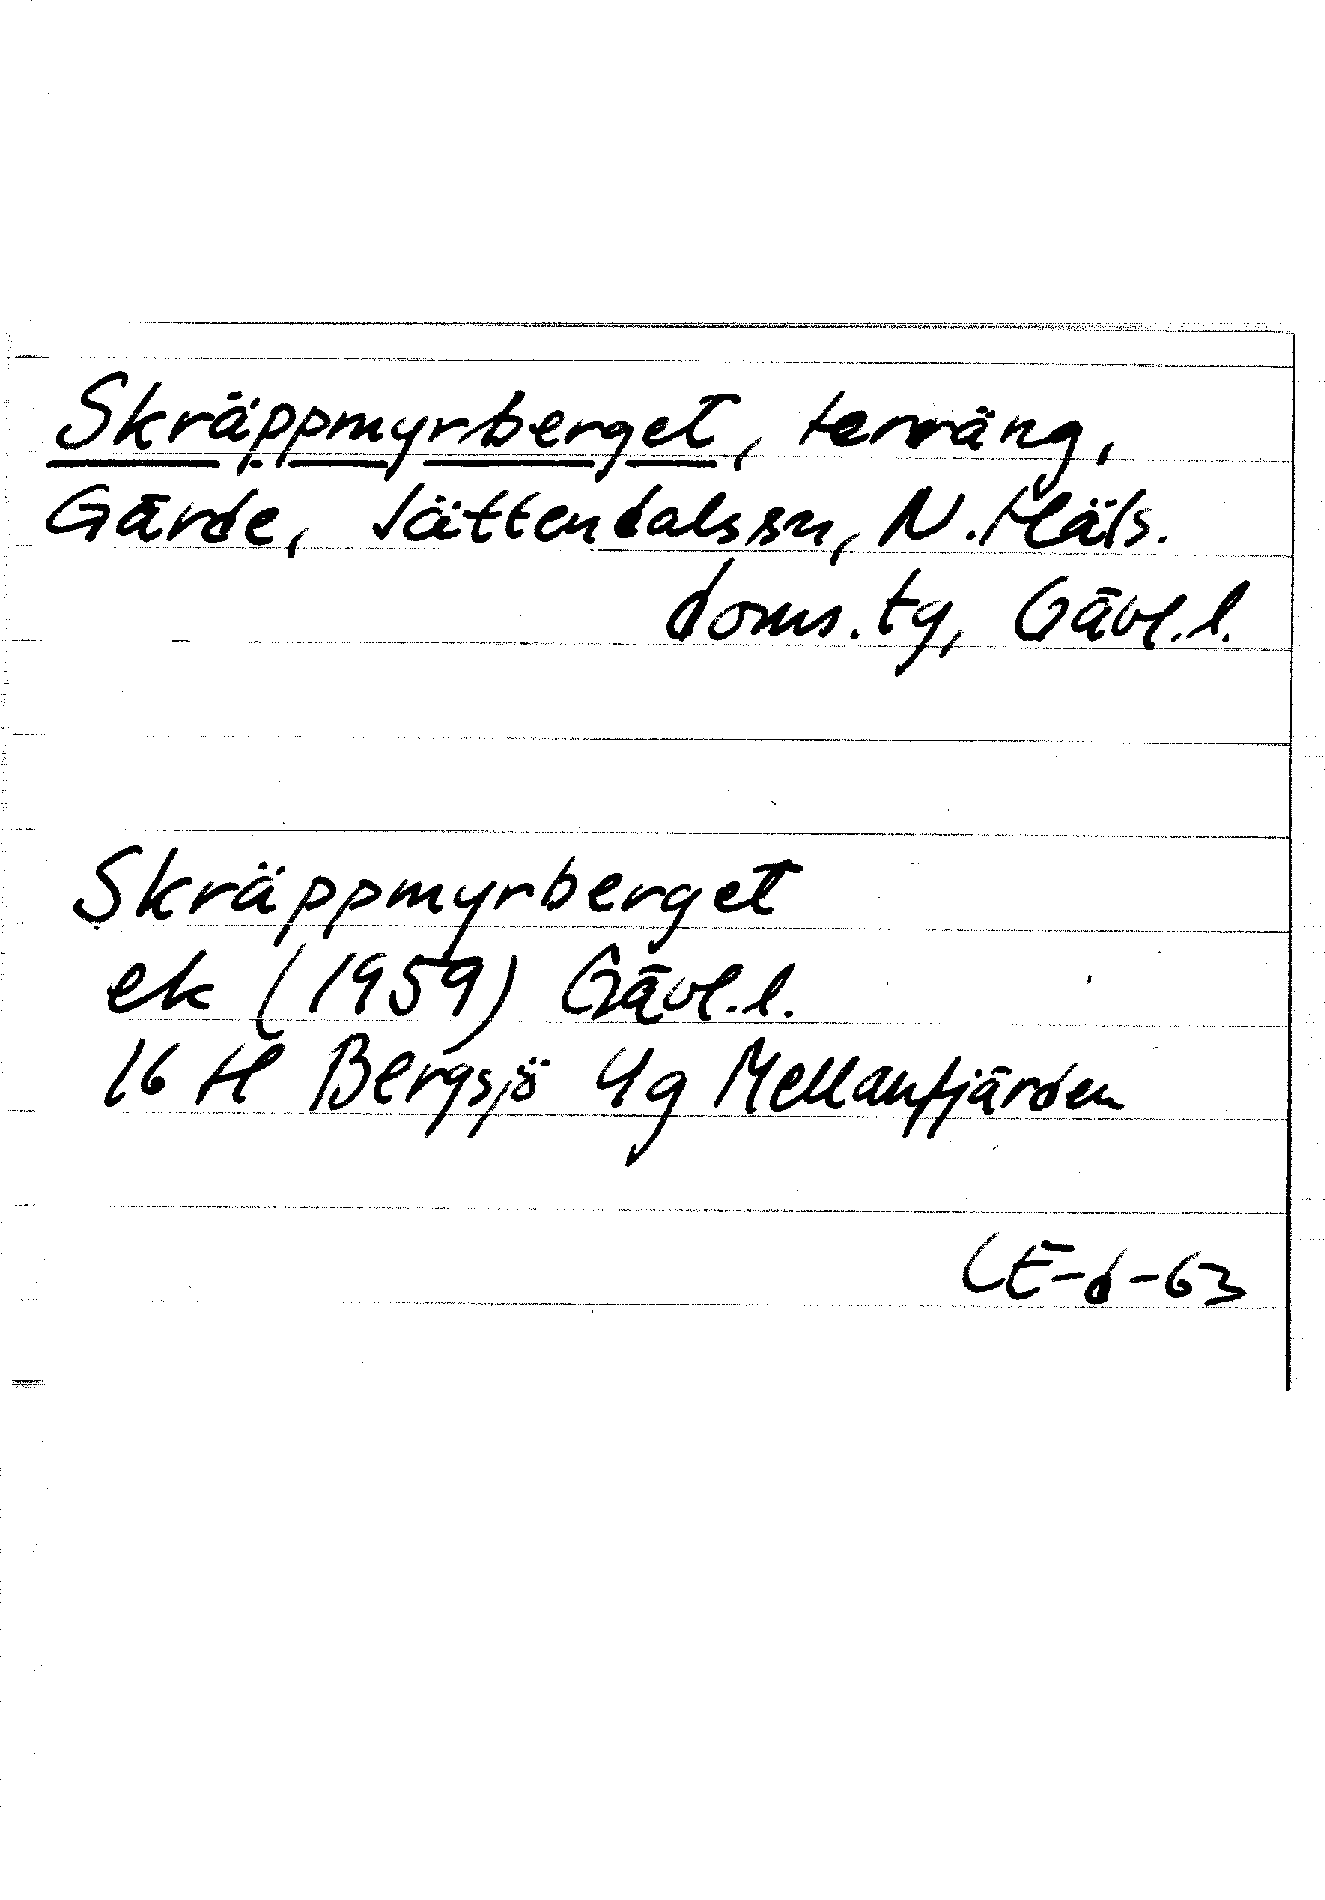 Skräppmyrberget, terräng,
Gärde, Jättendalssn, N. Häls.
doms. tg, Gävl. l.
Skräppmyrberget
ek (1959) Gävl. l.
16 H Bergsjö 4g Mellanfjärden
CE-d-63